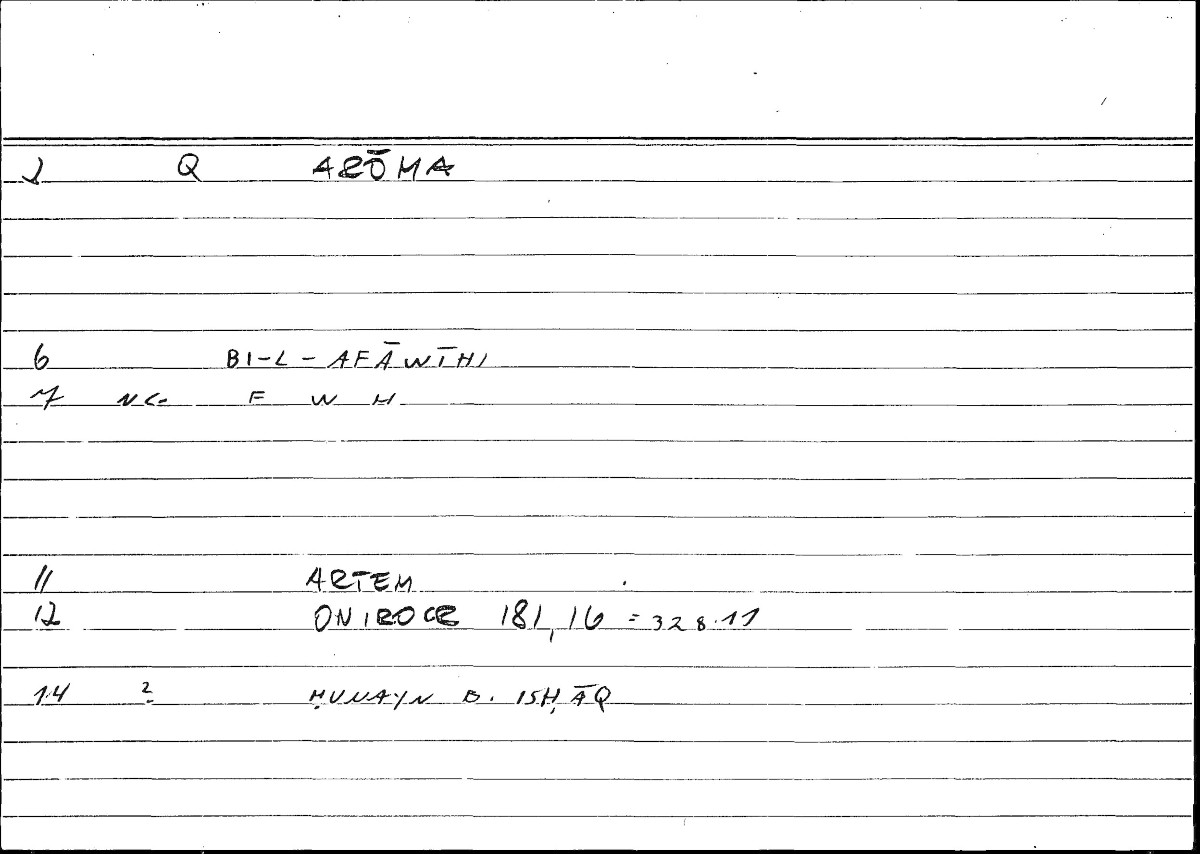 1 Q ARŌMA
6 BI-L-AFĀWĪHI
7 NC. F W H
11 ARTEM
12 ONIROCR 181,16 = 328.11
14 2 ḤUNAYN B. ISḤĀQ